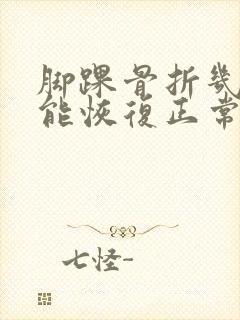 脚踝骨折幾
能恢復正常
七怪-